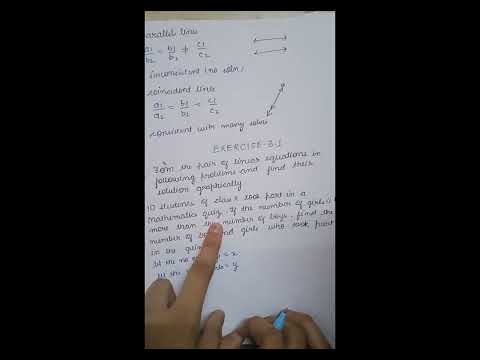 parallel lines
a1/b2 = b1/b2 ≠ c1/c2
inconsistent (no soln)
coincident lines
a1/a2 = b1/b2 = c1/c2
consistent with many solns
EXERCISE-3.1
Form the pair of linear equations in
following problems and find their
solution graphically
10 students of class X took part in a
Mathematics quiz. If the number of girls is
more than the number of boys, find the
number of and girls who took part
in the
let the no = x
let the = y